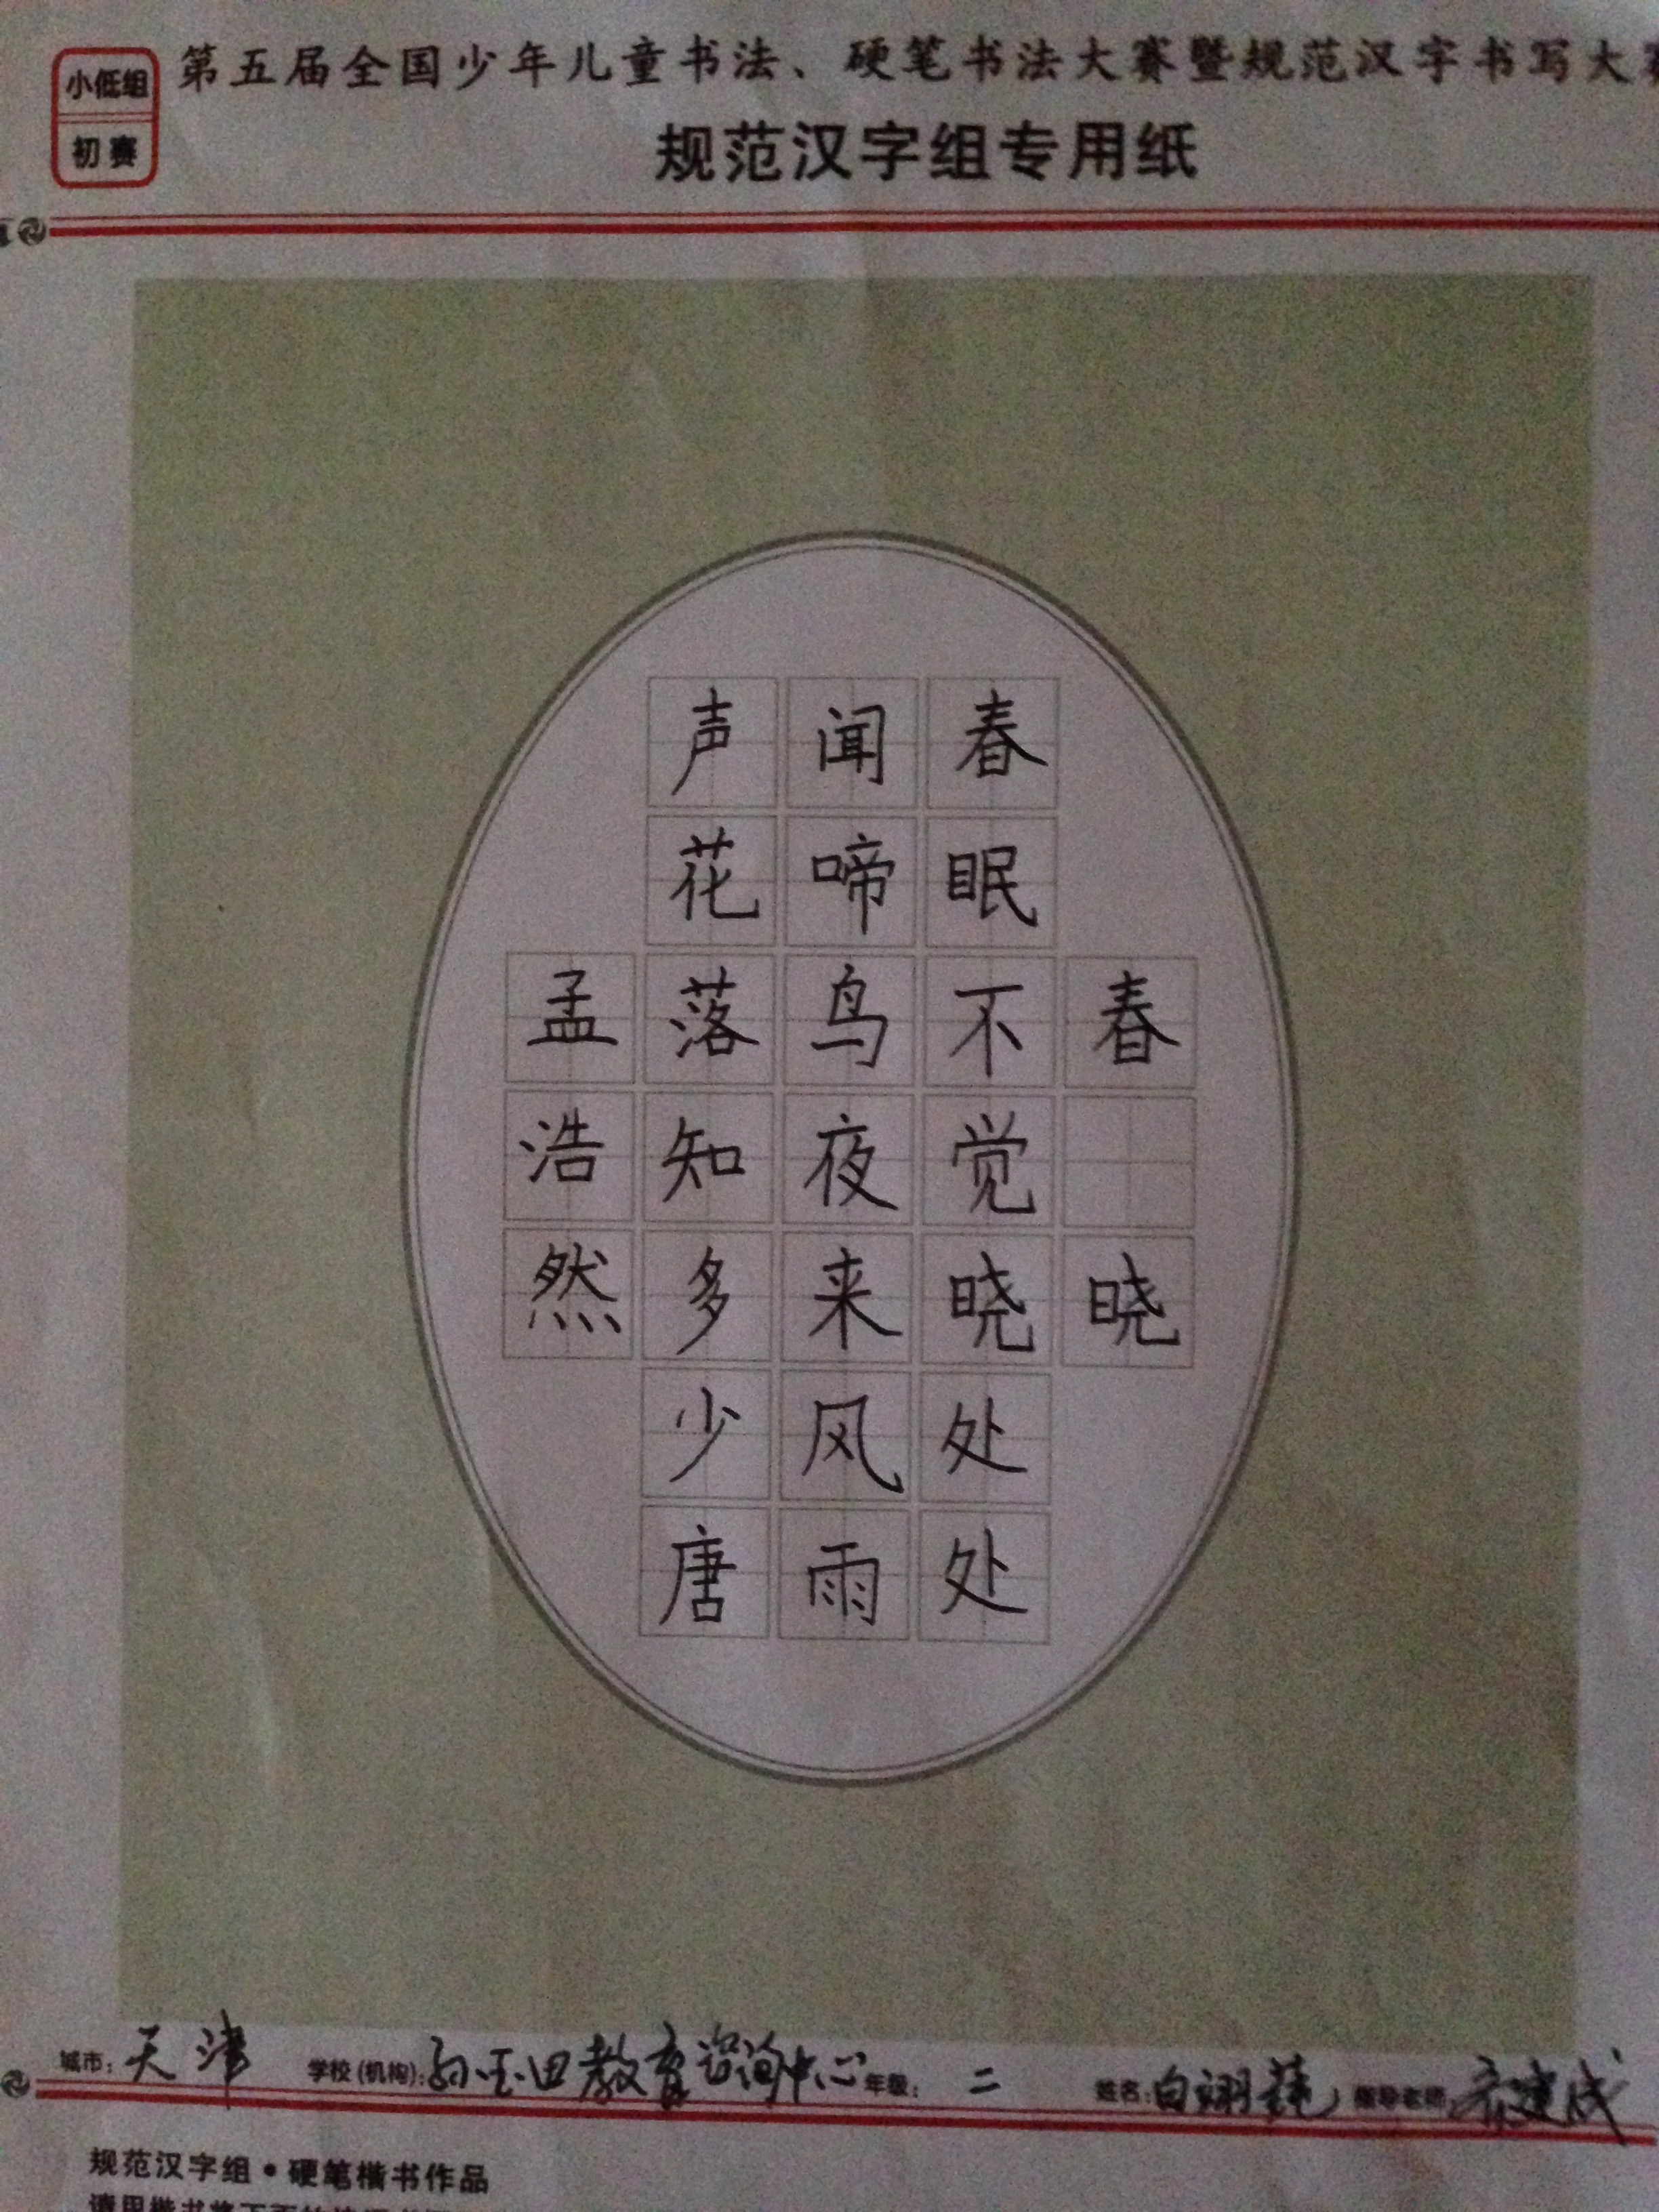 小低组
初赛
第五届全国少年儿童书法、硬笔书法大赛暨规范汉字书写大赛
规范汉字组专用纸
春晓
春眠不觉晓处处
闻啼鸟夜来风雨
声花落知多少唐
孟浩然
城市：天津 学校（机构）：教育咨询中心 年级：二 姓名：白翊 指导老师：建成
规范汉字组•硬笔楷书作品